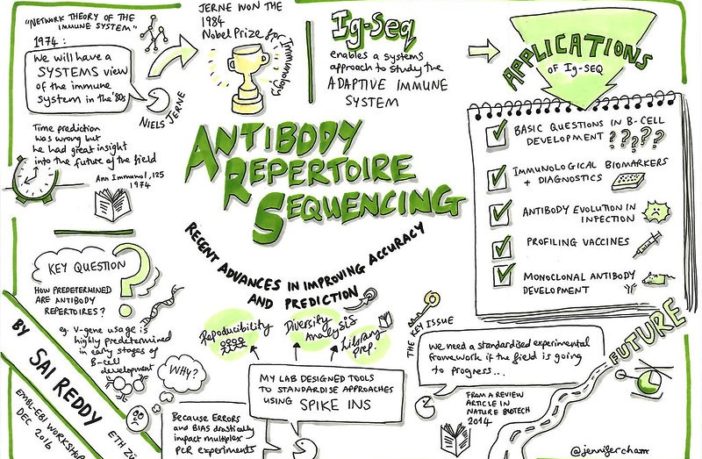 "NETWORK THEORY OF THE
IMMUNE SYSTEM"
1974:
We will have a
SYSTEMS view
of the immune
system in the '80s
NIELS JERNE
Time prediction
was wrong but
he had great insight
into the future of the field
Ann Immunol, 125
1974
JERNE WON THE
1984
Nobel Prize for
Immunology
Ig-Seq
enables a systems
approach to study the
ADAPTIVE IMMUNE
SYSTEM
APPLICATIONS
OF Ig-SEQ
BASIC QUESTIONS IN B-CELL
DEVELOPMENT ?????
IMMUNOLOGICAL BIOMARKERS
+ DIAGNOSTICS
ANTIBODY EVOLUTION IN
INFECTION
PROFILING VACCINES
MONOCLONAL ANTIBODY
DEVELOPMENT
ANTIBODY
REPERTOIRE
SEQUENCING
RECENT ADVANCES IN IMPROVING ACCURACY
AND PREDICTION
Reproducibility
Diversity
Analysis
Library
Prep.
KEY QUESTION
HOW PREDETERMINED
ARE ANTIBODY
REPERTOIRES?
eg. V-gene usage is
highly predetermined
in early stages of
B-cell
development
BY SAI REDDY
EMBL-EBI WORKSHOP
DEC 2016
WHY?
Because ERRORS
and BIAS drastically
impact multiplex
PCR experiments
MY LAB DESIGNED TOOLS
TO STANDARDISE APPROACHES
USING SPIKE INS
THE KEY ISSUE
We need a standardised experimental
framework if the field is going
to progress...
FROM A REVIEW
ARTICLE IN
NATURE BIOTECH
2014
FUTURE
@jennifercham